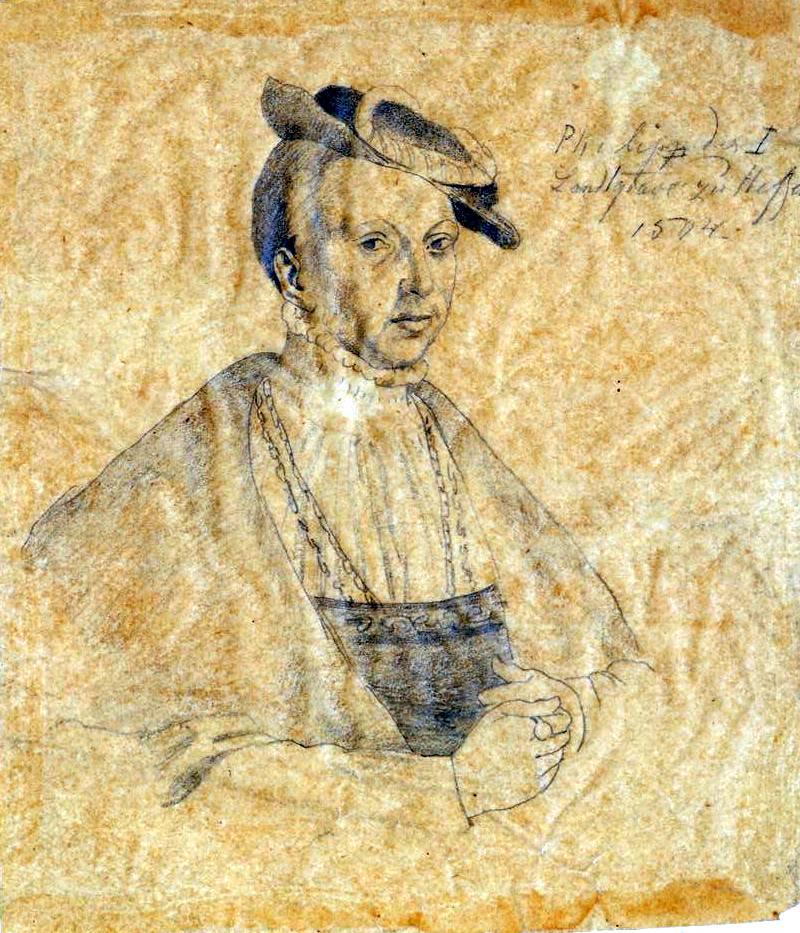 Philipp der I
Landgrave zu Hesse
1574